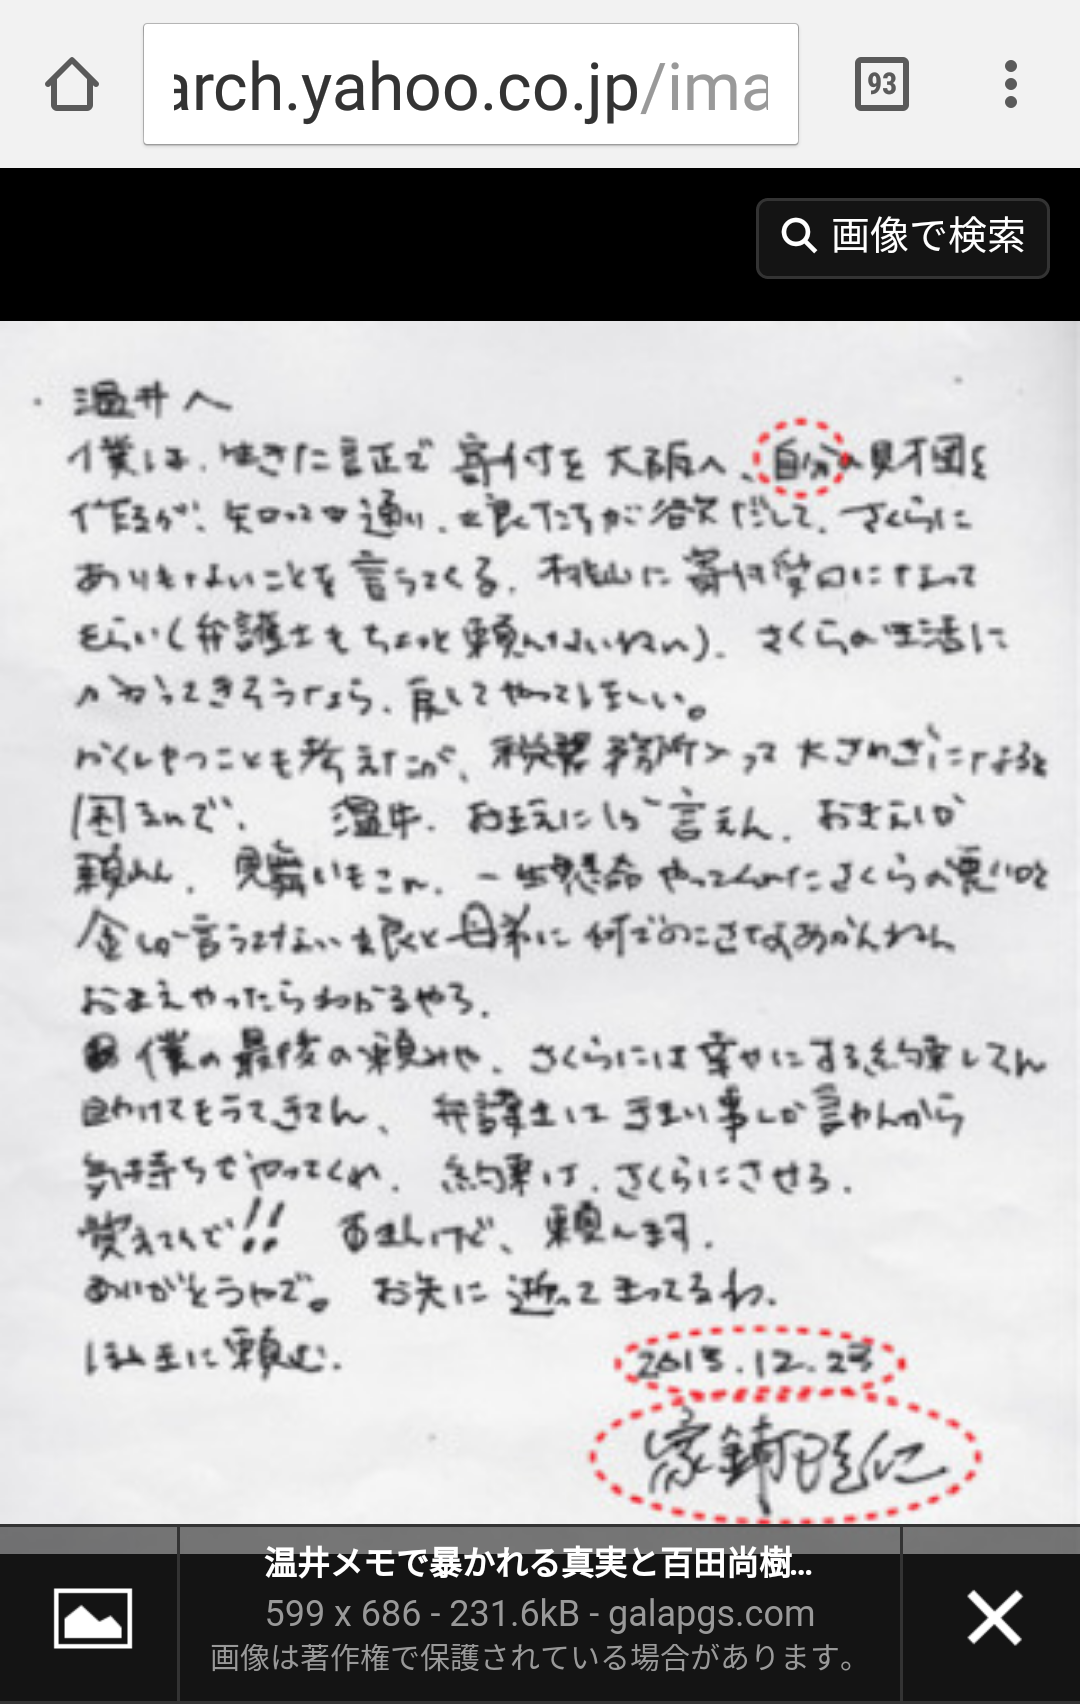 arch.yahoo.co.jp/ima
93
画像で検索
温井へ
僕は、生きた証正で寄付を大阪へ、自分の財団を
作るが、知っての通り、娘たちが欲だして、さくらに
ありもしないことを言うてくる。桃山に寄付受口になって
もらい(弁護士もちょっと頼んないねん)、さくらの生活に
かかってきそうなら、戻してやってほしい。
かくしもつことも考えたが、税務所入って大さわぎになると
困るので、 温井、お玉にしか言えん、おまえしか
頼れん、見舞いもこん、一生懸命やってくれたさくらの悪口と
金しか言うてけえへん娘と母弟に何でのこさなあかんねん
おまえやったらわかるやろ。
僕の最後の頼みや、さくらには幸せにする約束してん
助けてもうてきてん、弁護士はうまい事しか言わんから
気持ちでやってくれ、約束は、さくらにさせる。
覚えてんで!! 百まんけど、頼んます。
ありがとうやで。お先に逝って まってるわ。
ほんまに頼む。
2013.12.23
家鋪隆仁
温井メモで暴かれる真実と百田尚樹...
599 x 686 - 231.6kB - galapgs.com
画像は著作権で保護されている場合があります。